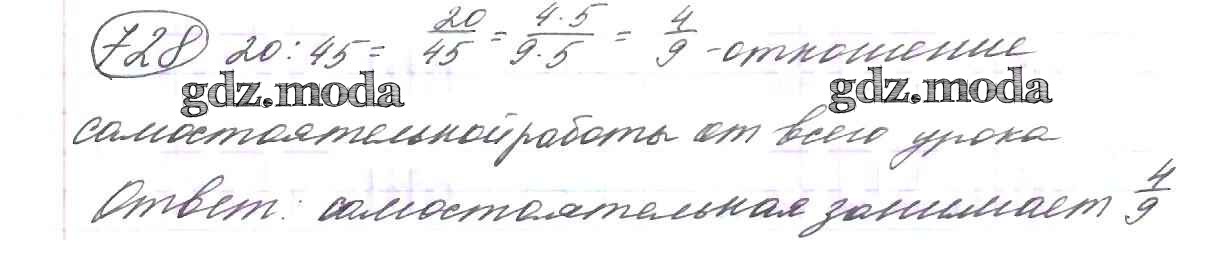 728 20 : 45 = 20/45 = 4·5/9·5 = 4/9 - отношение
gdz.moda gdz.moda
самостоятельной работы от всего урока
Ответ: самостоятельная занимает 4/9